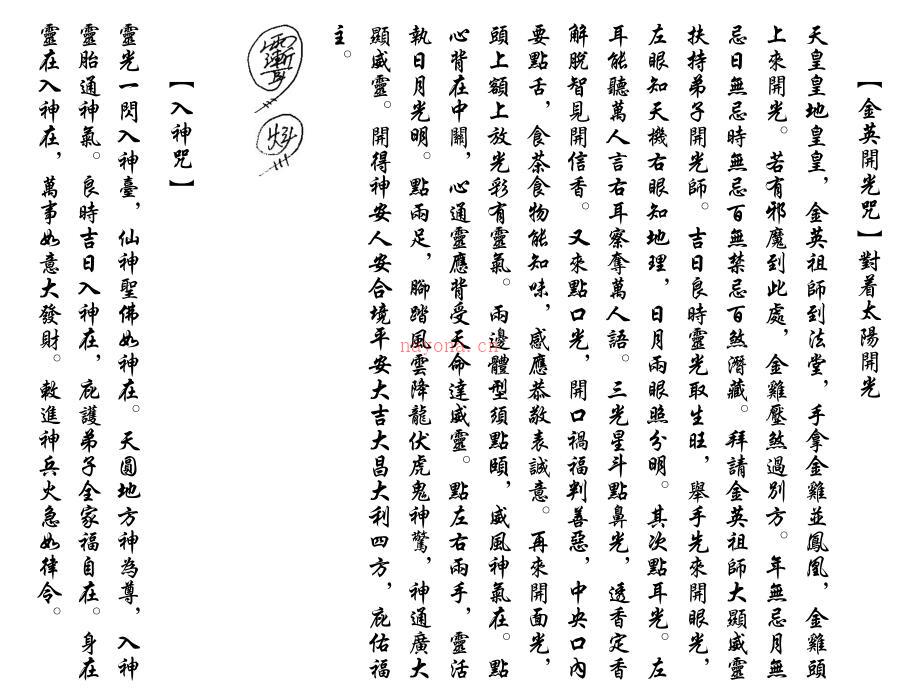 【金英開光咒】對着太陽開光
天皇皇地皇皇，金英祖師到法堂，手拿金雞並鳳凰，金雞頭
上來開光。若有邪魔到此處，金雞壓煞過別方。年無忌月無
忌日無忌時無忌百無禁忌百煞潛藏。拜請金英祖師大顯威靈
扶持弟子開光師。吉日良時靈光取生旺，舉手先來開眼光，
左眼知天機右眼知地理，日月兩眼照分明。其次點耳光。左
耳能聽萬人言右耳察奪萬人語。三光星斗點鼻光，透香定香
解脫智見開信香。又來點口光，開口禍福判善惡，中央口內
要點舌，食茶食物能知味，感應恭敬表誠意。再來開面光，
頭上額上放光彩有靈氣。兩邊體型須點頤，威風神氣在。點
心背在中關，心通靈應背受天命達威靈。點左右兩手，靈活
執日月光明。點兩足，腳踏風雲降龍伏虎鬼神驚，神通廣大
顯威靈。開得神安人安合境平安大吉大昌大利四方，庇佑福
主。
【入神咒】
靈光一閃入神臺，仙神聖佛如神在。天圓地方神為尊，入神
靈胎通神氣。良時吉日入神在，庇護弟子全家福自在。身在
靈在入神在，萬事如意大發財。敕進神兵火急如律令。
nayona.cn